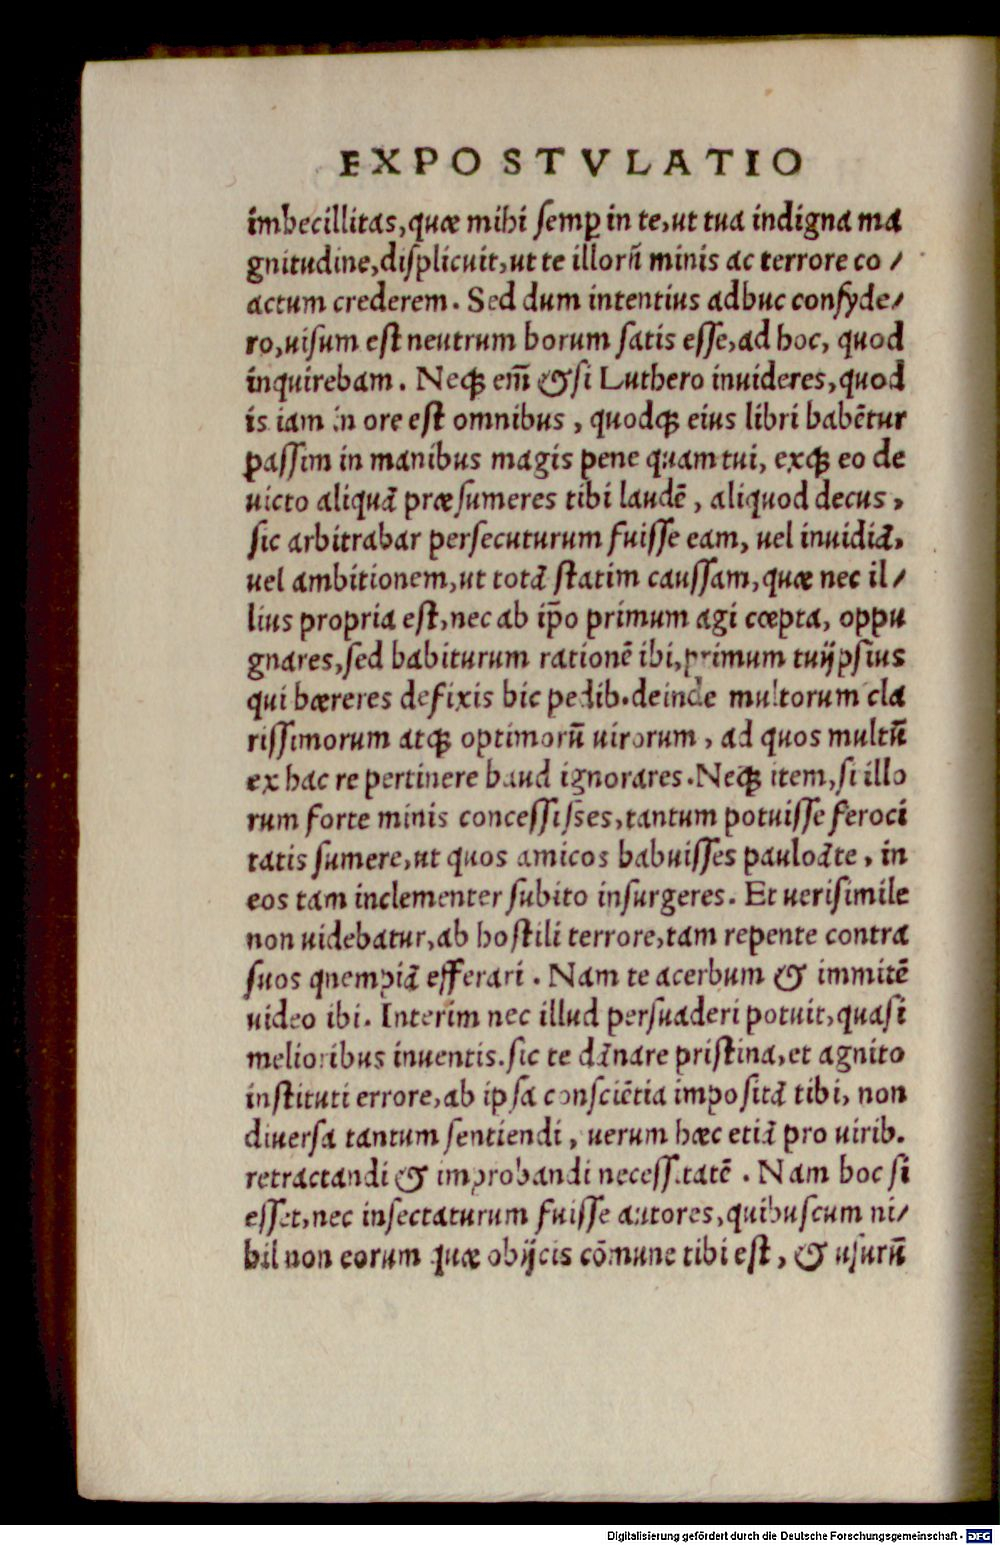 EXPOSTVLATIO
imbecillitas, quæ mihi semꝑ in te, ut tua indigna ma
gnitudine, displicuit, ut te illorũ minis ac terrore co/
actum crederem. Sed dum intentius adhuc consyde/
ro, uisum est neutrum horum satis esse, ad hoc, quod
inquirebam. Neqꝫ em̃ & si Luthero inuideres, quod
is iam in ore est omnibus, quodqꝫ eius libri habẽtur
passim in manibus magis pene quam tui, exqꝫ eo de
uicto aliquã præsumeres tibi laudẽ, aliquod decus,
sic arbitrabar persecuturum fuisse eam, uel inuidiã,
uel ambitionem, ut totã statim caussam, quæ nec il/
lius propria est, nec ab ip̃o primum agi cœpta, oppu
gnares, sed habiturum rationẽ ibi, primum tuijpsius
qui hæreres defixis hic pedib. deinde multorum cla
rissimorum atqꝫ optimorũ uirorum, ad quos multũ
ex hac re pertinere haud ignorares. Neqꝫ item, si illo
rum forte minis concessisses, tantum potuisse feroci
tatis sumere, ut quos amicos habuisses pauloãte, in
eos tam inclementer subito insurgeres. Et uerisimile
non uidebatur, ab hostili terrore, tam repente contra
suos qnempiã efferari. Nam te acerbum & immitẽ
uideo ibi. Interim nec illud persuaderi potuit, quasi
melioribus inuentis. sic te dãnare pristina, et agnito
instituti errore, ab ipsa consciẽtia impositã tibi, non
diuersa tantum sentiendi, uerum hæc etiã pro uirib.
retractandi & improbandi necessitatẽ. Nam hoc si
esset, nec insectaturum fuisse autores, quibuscum ni/
hil non eorum quæ obijcis cõmune tibi est, & usurũ
Digitalisierung gefördert durch die Deutsche Forschungsgemeinschaft - DFG